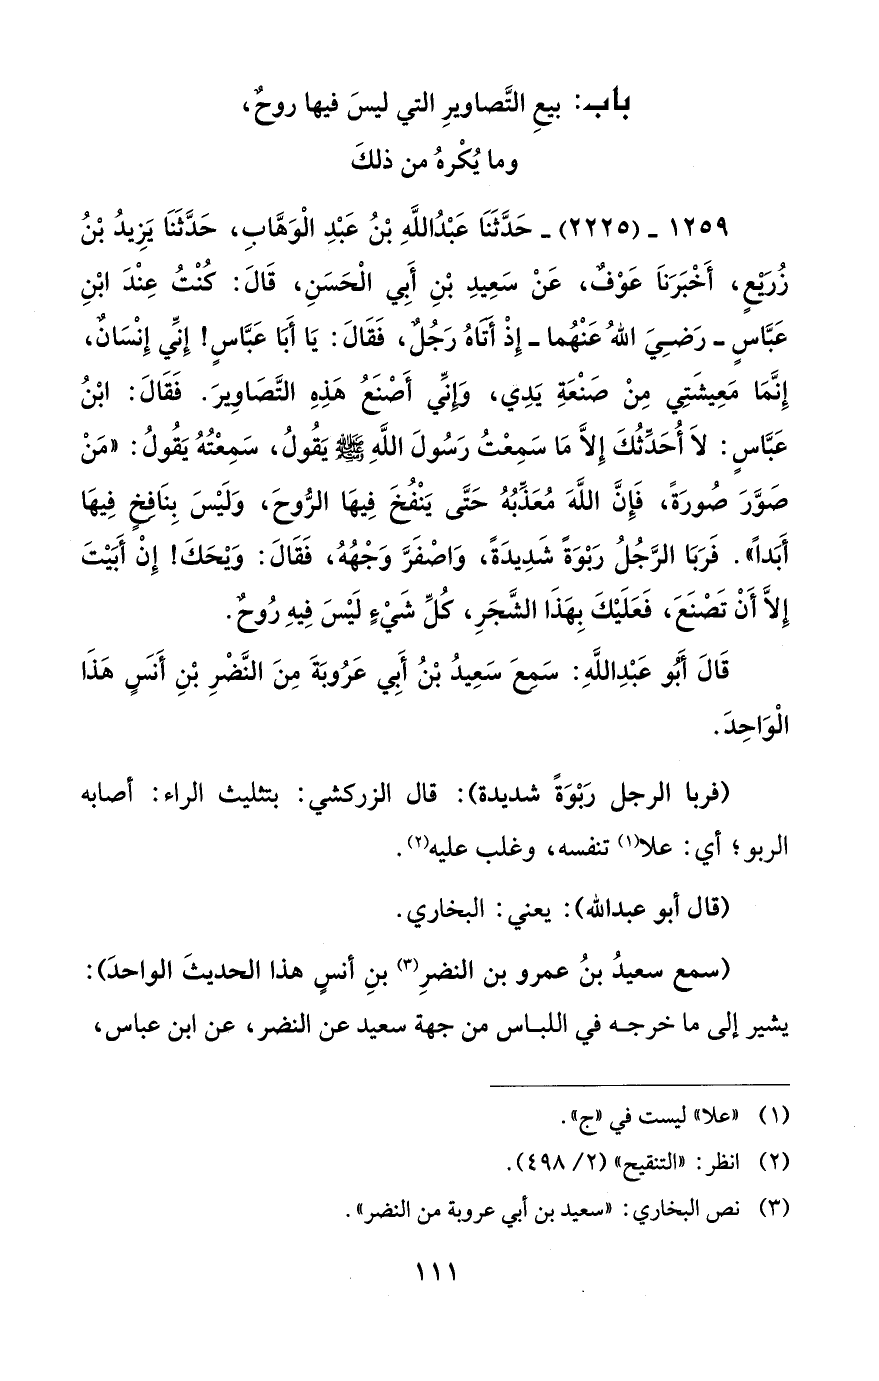 باب: بيعِ التَّصاويرِ التي ليسَ فيها روحٌ،
وما يُكْرهُ من ذلكَ
١٢٥٩ ـ (٢٢٢٥) ـ حَدَّثَنَا عَبْدُاللَّهِ بْنُ عَبْدِ الْوَهَّابِ، حَدَّثَنَا يَزِيدُ بْنُ
زُرَيْعٍ، أَخْبَرَنَا عَوْفٌ، عَنْ سَعِيدِ بْنِ أَبِي الْحَسَنِ، قَالَ: كُنْتُ عِنْدَ ابْنِ
عَبَّاسٍ ـ رَضِيَ اللهُ عَنْهُما ـ إِذْ أَتَاهُ رَجُلٌ، فَقَالَ: يَا أَبَا عَبَّاسٍ! إِنِّي إِنْسَانٌ،
إِنَّمَا مَعِيشَتِي مِنْ صَنْعَةِ يَدِي، وَإِنِّي أَصْنَعُ هَذِهِ التَّصَاوِيرَ. فَقَالَ: ابْنُ
عَبَّاسٍ: لاَ أُحَدِّثُكَ إِلاَّ مَا سَمِعْتُ رَسُولَ اللَّهِ ﷺ يَقُولُ، سَمِعْتُهُ يَقُولُ: «مَنْ
صَوَّرَ صُورَةً، فَإِنَّ اللَّهَ مُعَذِّبُهُ حَتَّى يَنْفُخَ فِيهَا الرُّوحَ، وَلَيْسَ بِنَافِخٍ فِيهَا
أَبَداً». فَرَبَا الرَّجُلُ رَبْوَةً شَدِيدَةً، وَاصْفَرَّ وَجْهُهُ، فَقَالَ: وَيْحَكَ! إِنْ أَبَيْتَ
إِلاَّ أَنْ تَصْنَعَ، فَعَلَيْكَ بِهَذَا الشَّجَرِ، كُلِّ شَيْءٍ لَيْسَ فِيهِ رُوحٌ.
قَالَ أَبُو عَبْدِاللَّهِ: سَمِعَ سَعِيدُ بْنُ أَبِي عَرُوبَةَ مِنَ النَّضْرِ بْنِ أَنَسٍ هَذَا
الْوَاحِدَ.
(فربا الرجل رَبْوَةً شديدة): قال الزركشي: بتثليث الراء: أصابه
الربو؛ أي: علا(١) تنفسه، وغلب عليه(٢).
(قال أبو عبدالله): يعني: البخاري.
(سمع سعيدُ بنُ عمرو بن النضرِ(٣) بنِ أنسٍ هذا الحديثَ الواحدَ):
يشير إلى ما خرجه في اللباس من جهة سعيد عن النضر، عن ابن عباس،
(١) «علا» ليست في «ج».
(٢) انظر: «التنقيح» (٢/ ٤٩٨).
(٣) نص البخاري: «سعيد بن أبي عروبة من النضر».
١١١